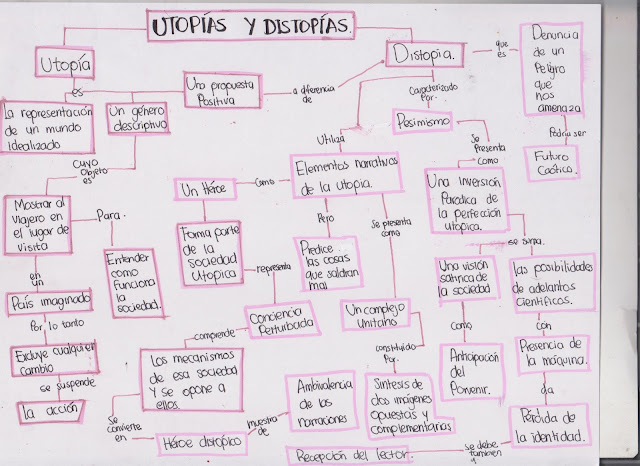 UTOPÍAS Y DISTOPÍAS.
Utopía
Distopia.
que
es
Denuncia
de un
Peligro
que
nos
amenaza
es
Una propuesta
Positiva
a diferencia
de
Caracterizado
Por.
La representación
de un mundo
idealizado
Un género
descriptivo
Pesimismo
Podría ser
Futuro
Caótico.
Utiliza
Se
Presenta
como
cuyo
objeto
es
Elementos narrativos
de la utopia.
como
Un Héroe
Una inversión
Paródica de
la perfección
utopica.
Mostrar al
viajero en
el lugar de
visita
Para.
Entender
como
funciona
la
sociedad.
Forma parte
de la
sociedad
Utopica
Pero
Predice
las cosas
que saldran
mal
Se presenta
como
se suma.
Una visión
satirica de
la sociedad
las posibilidades
de adelantos
científicos.
en
un
País imaginado
representa
Conciencia
Perturbada
Un complejo
Unitario
Por lo tanto
comprende
como
con
Excluye cualquier
cambio
Los mecanismos
de esa sociedad
y se opone a
ellos.
constituido
Por.
Anticipación
del
Porvenir.
Presencia de
la máquina.
se suspende
la acción
Ambivalencia
de las
narraciones
Sintesis de
dos imágenes
opuestas y
complementarias
da
Pérdida de
la identidad.
Se
convierte
en
Héroe distópico
muestra
de
Recepción del lector.
se debe
tambien